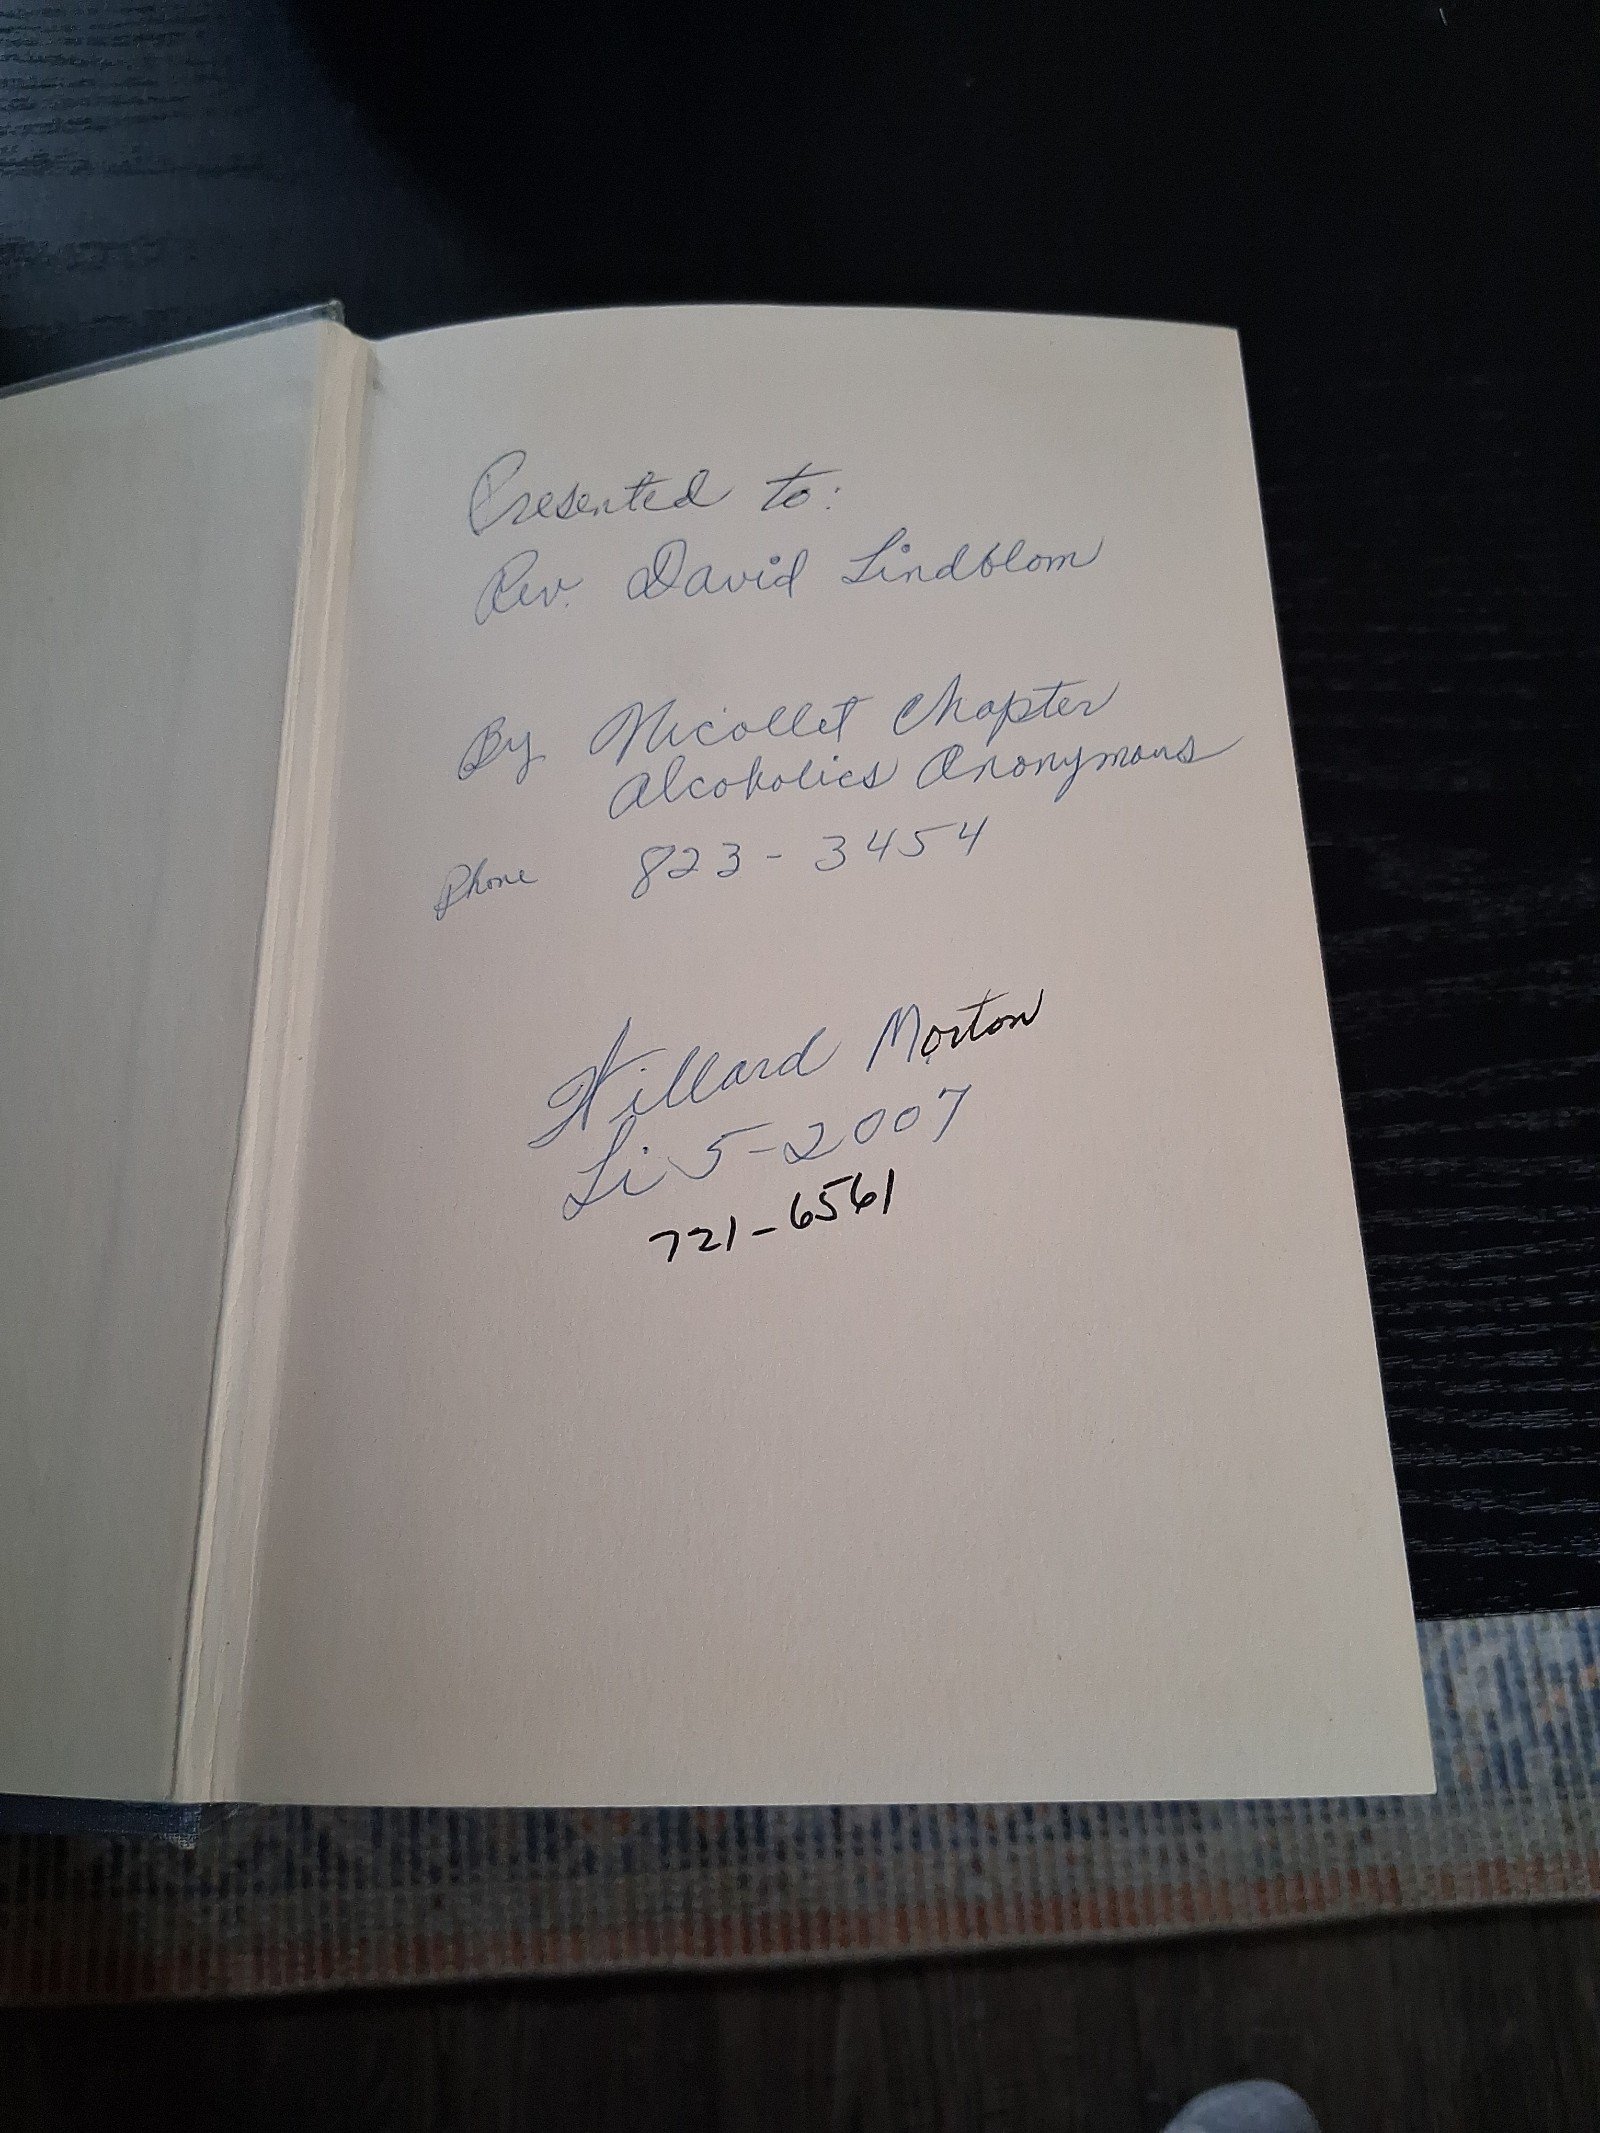 Presented to:
Rev. David Lindblom
By Nicollet Chapter
Alcoholics Anonymous
Phone 823-3454
Willard Morton
Li 5-2007
721-6561